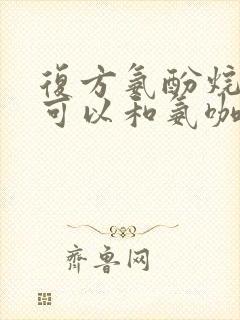 復方氨酚烷
可以和氨咖
齊魯网